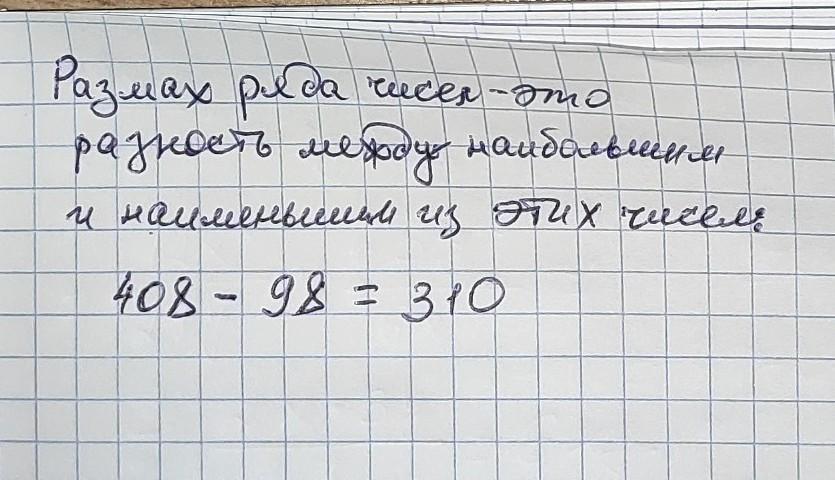 Размах ряда чисел - это
разность между наибольшим
и наименьшим из этих чисел:
408 - 98 = 310